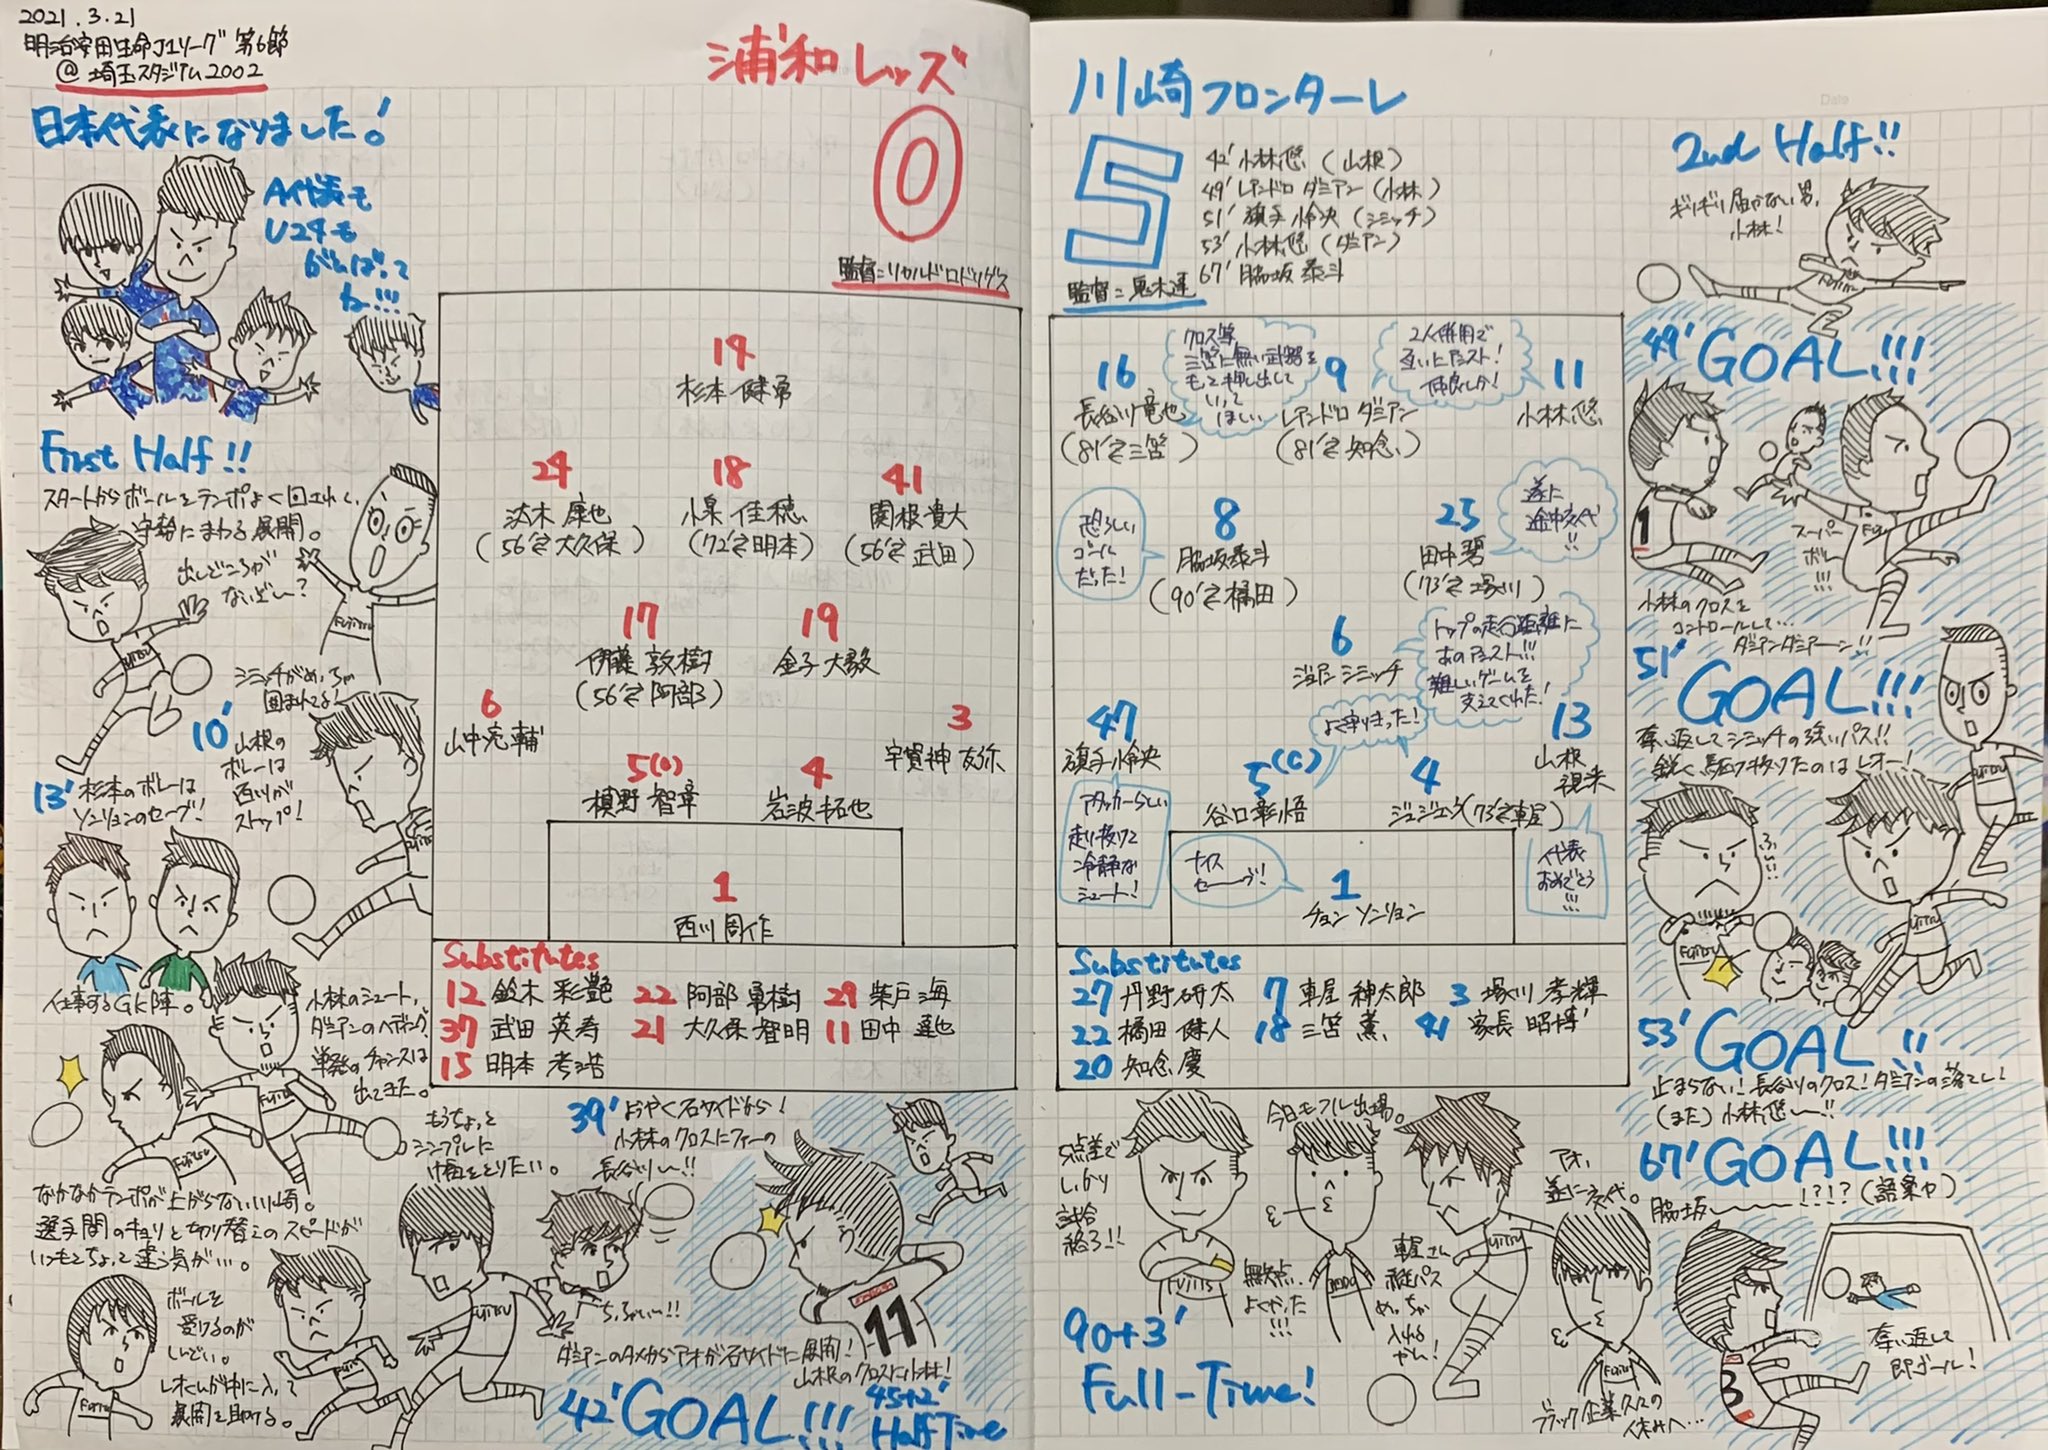 2021.3.21
明治安田生命J1リーグ 第6節
@ 埼玉スタジアム2002
日本代表になりました!
A代表も
U24も
がんばって
ね!!!
First Half!!
スタートからボールをテンポよく回されて、
守勢にまわる展開。
出しどころが
ないぜー?
FUJITSU
シミッチがめっちゃ
囲まれてる!
10'
山根の
ボレーは
西川が
ストップ!
13'
杉本のボレーは
ソンリョンのセーブ!
仕事するGK陣。
小林のシュート、
ダミアンのヘディング、
単発のチャンスは
出てきた。
FUJITSU
なかなかテンポが上がらない川崎。
選手間のキョリと切り替えのスピードが
いつもとちょっと違う気が…。
ボールを
受けるのが
しんどい。
レオくんが中に入って
展開を助ける。
もうちょっと
シンプルに
FUJITSU
39'
ようやく右サイドから!
小林のクロスにファーの
長谷川ー!!
ちっちゃい!!
11
ダミアンのタメからアオが右サイドに展開!
山根のクロスに小林!
42' GOAL!!!
45+2'
Half Time
浦和レッズ
0
監督=リカルドロドリゲス
14
杉本 健勇
24
汰木 康也
(56'⇄大久保)
18
小泉 佳穂
(72'⇄明本)
41
関根 貴大
(56'⇄武田)
17
伊藤 敦樹
(56'⇄阿部)
19
金子 大毅
6
山中 亮輔
5(C)
槙野 智章
4
岩波 拓也
3
宇賀神 友弥
1
西川 周作
Substitutes
12 鈴木 彩艶 22 阿部 勇樹 29 柴戸 海
37 武田 英寿 21 大久保 智明 11 田中 達也
15 明本 考浩
川崎フロンターレ
5
42' 小林悠 (山根)
49' レアンドロ ダミアン (小林)
51' 旗手怜央 (シミッチ)
53' 小林悠 (ダミアン)
67' 脇坂泰斗
監督=鬼木達
16
長谷川竜也
(81'⇄三笘)
クロス等
三笘に無い武器を
もっと押し出して
いって
ほしい
9
レアンドロ ダミアン
(81'⇄知念)
2人併用で
互いにアシスト!
仲良しか!
11
小林悠
恐ろしい
ゴール
だった!
8
脇坂泰斗
(90'⇄橘田)
25
田中碧
(73'⇄塚川)
遂に
途中交代
!!
6
ジョアン シミッチ
トップの走行距離に
あのアシスト!!!
難しいゲームを
支えてくれた!
47
旗手怜央
アタッカーらしい
走り抜けと
冷静な
シュート!
5(C)
谷口彰悟
よく守りきった!
4
ジェジエウ(73'⇄車屋)
13
山根
視来
代表
おめでとう
!!!
ナイス
セーーブ!
1
チョン ソンリョン
Substitutes
27 丹野 研太 7 車屋 紳太郎 3 塚川 孝輝
22 橘田 健人 18 三笘 薫 41 家長 昭博
20 知念 慶
5点差で
しっかり
試合
終了!!
FUJITSU
今日もフル出場。
無失点、
よくやった
!!!
車屋さん
縦パス
めっちゃ
入れる
やん!
FUJITSU
アオ、
遂に交代。
FUJITSU
ブラック企業久々の
休みへ…
90+3'
Full-Time!
2nd Half!!
ギリギリ届かない男、
小林!
FUJITSU
49' GOAL!!!
1
スーパー
ボレー
!!!
小林のクロスを
コントロールして…
ダミアンダミアーーン!!
51' GOAL!!!
奪い返してシミッチの強いパス!!
鋭く駆け抜けたのはレオー!
FUJITSU
53' GOAL!!
止まらない!長谷川のクロス!ダミアンの落とし!
(また)小林悠ー!!
67' GOAL!!!
脇坂〜〜〜!?!?(語彙力)
奪い返して
即ゴール!